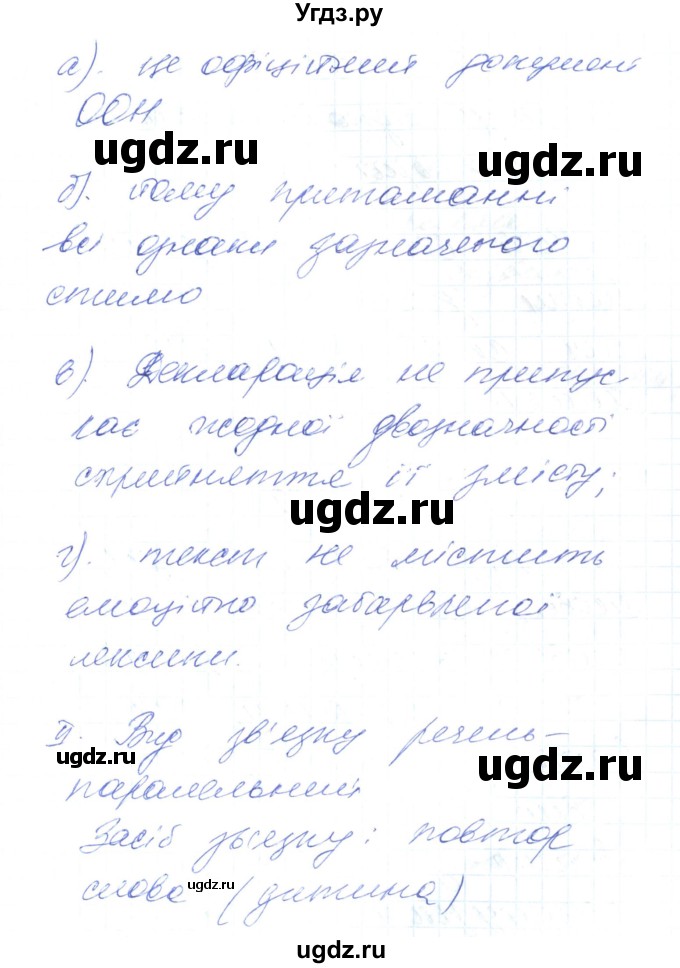 Угдз.ру
а). це офіційний документ
ООН
ugdz.ru
ugdz.ru
б). тому притаманні
всі ознаки зазначеного
стилю
в). Декларація не припус-
кає жодної двозначності
сприйняття її змісту;
ugdz.ru
г). текст не містить
емоційно забарвленої
лексики.
ІІ. Вид зв'язку речень-
ugdz.ru
ugdz.ru
паралельний
Засіб зв'язку: повтор
слова (дитина)
ugdz.ru
ugdz.ru